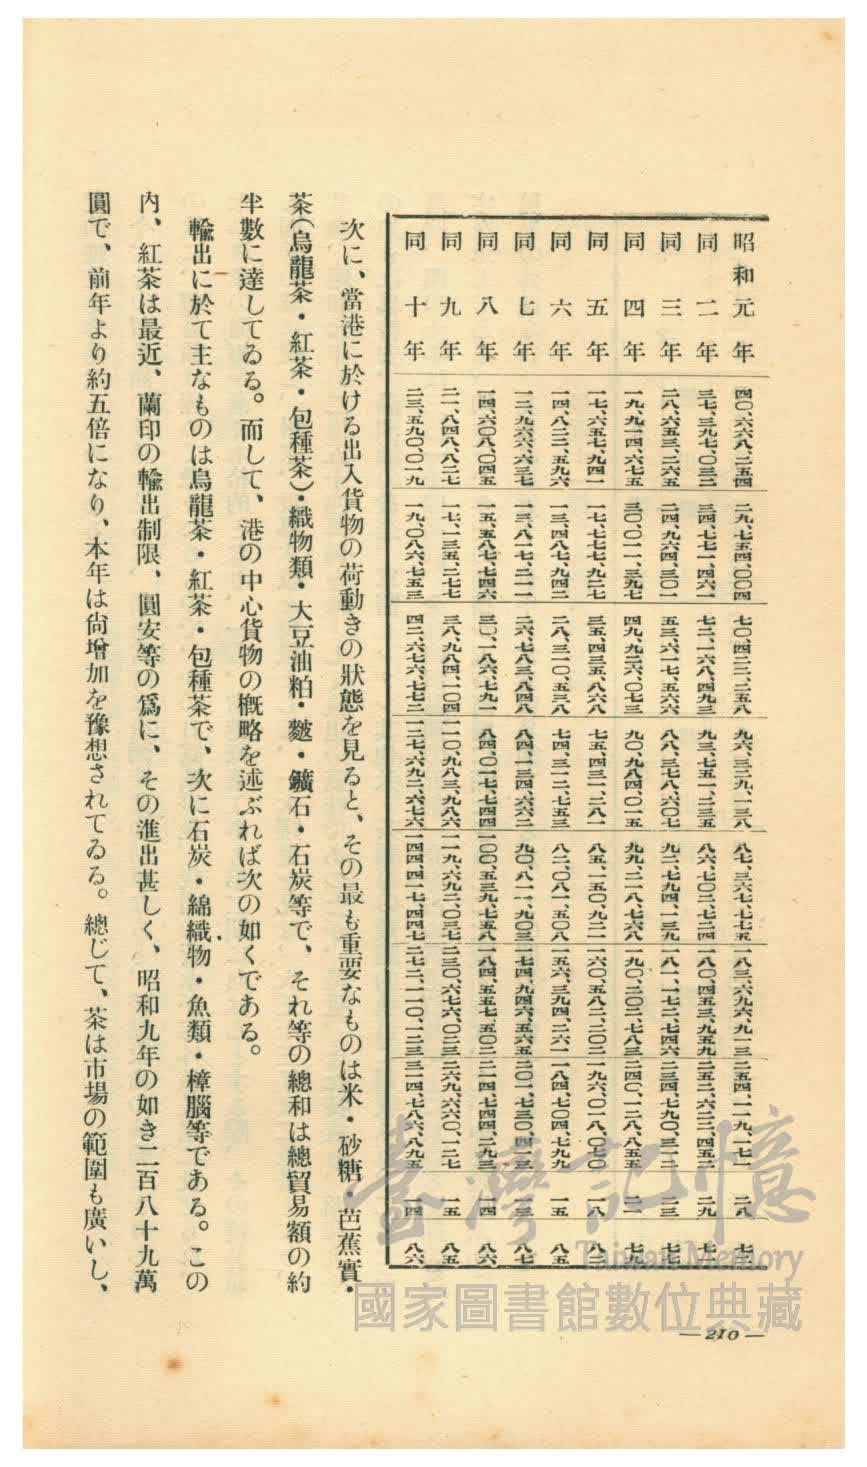 — 210 —
昭和元年 四〇、六六八、二五四 二九、七五四、〇〇四 七〇、四二二、二五八 九六、三二九、一三八 八七、三六七、七七五 一八三、六九六、九一三 二五四、一一九、一七一 二八 七二
同二年 三七、三九七、〇三二 三四、七七一、四六一 七二、一六八、四九三 九三、七五一、二三五 八六、七〇二、七二四 一八〇、四五三、九五九 二五二、六二二、四五二 二九 七一
同三年 二八、六五三、二六五 二四、九六四、三〇一 五三、六一七、五六六 八八、三七八、六〇七 九二、七九四、一三九 一八一、一七二、七四六 二三四、七九〇、三一二 二三 七七
同四年 一九、九一四、六七五 三〇、〇一一、三九七 四九、九二六、〇七三 九〇、九八四、〇一五 九九、二一八、七六八 一九〇、二〇二、七八三 二四〇、一二八、八五五 二一 七九
同五年 一七、六五七、九四一 一七、七七七、九二七 三五、四三五、八六八 七五、四三一、二八一 八五、一五〇、九二一 一六〇、五八二、二〇二 一九六、〇一八、〇七〇 一八 八二
同六年 一四、八二二、五九六 一三、四八七、九四二 二八、三一〇、五三八 七四、三一二、七五三 八二、〇八一、五〇八 一五六、三九四、二六一 一八四、七〇四、七九九 一五 八五
同七年 一二、九六六、六三七 一三、八一七、二一一 二六、七八三、八四八 八四、一三四、六六二 九〇、八一一、九〇三 一七四、九四六、五六五 二〇一、七三〇、四一三 一三 八七
同八年 一四、六〇八、〇四五 一五、五八七、七四六 三〇、一八六、七九一 八四、〇一七、七四四 一〇〇、五三九、七五八 一八四、五五七、五〇二 二一四、七四四、二九三 一四 八六
同九年 二一、八四八、八二七 一七、一三五、二七七 三八、九八四、一〇四 一一〇、九八三、九八六 一一九、六九二、〇三七 二三〇、六七六、〇二三 二六九、六六〇、一二七 一五 八五
同十年 二三、五九〇、〇一九 一九、〇八六、七五三 四二、六七六、七七二 一二七、六九二、六七六 一四四、四一七、四四七 二七二、一一〇、一二三 三一四、七八六、八九五 一四 八六
次に、當港に於ける出入貨物の荷動きの狀態を見ると、その最も重要なものは米・砂糖・芭蕉實・
茶(烏龍茶・紅茶・包種茶)・織物類・大豆油粕・麩・鑛石・石炭等で、それ等の總和は總貿易額の約
半數に達してゐる。而して、港の中心貨物の概略を述ぶれば次の如くである。
輸出に於て主なものは烏龍茶・紅茶・包種茶で、次に石炭・綿織物・魚類・樟腦等である。この
內、紅茶は最近、蘭印の輸出制限、圓安等の爲に、その進出甚しく、昭和九年の如き二百八十九萬
圓で、前年より約五倍になり、本年は尙增加を豫想されてゐる。總じて、茶は市場の範圍も廣いし、
臺灣記憶
Taiwan Memory
國家圖書館數位典藏